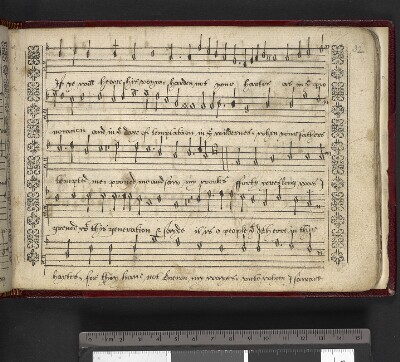 If ye will heare his voyce harden not your hartes as in ye pro
vocacion and in ye daye of temptation in ye wildernes when your fathers
tempted me proved me and sawe my workes fforty yeres long was I
greved wt this generation & sayde it is a people yt doth erre in their
hartes for they have not knowen my wayes unto whom I sware